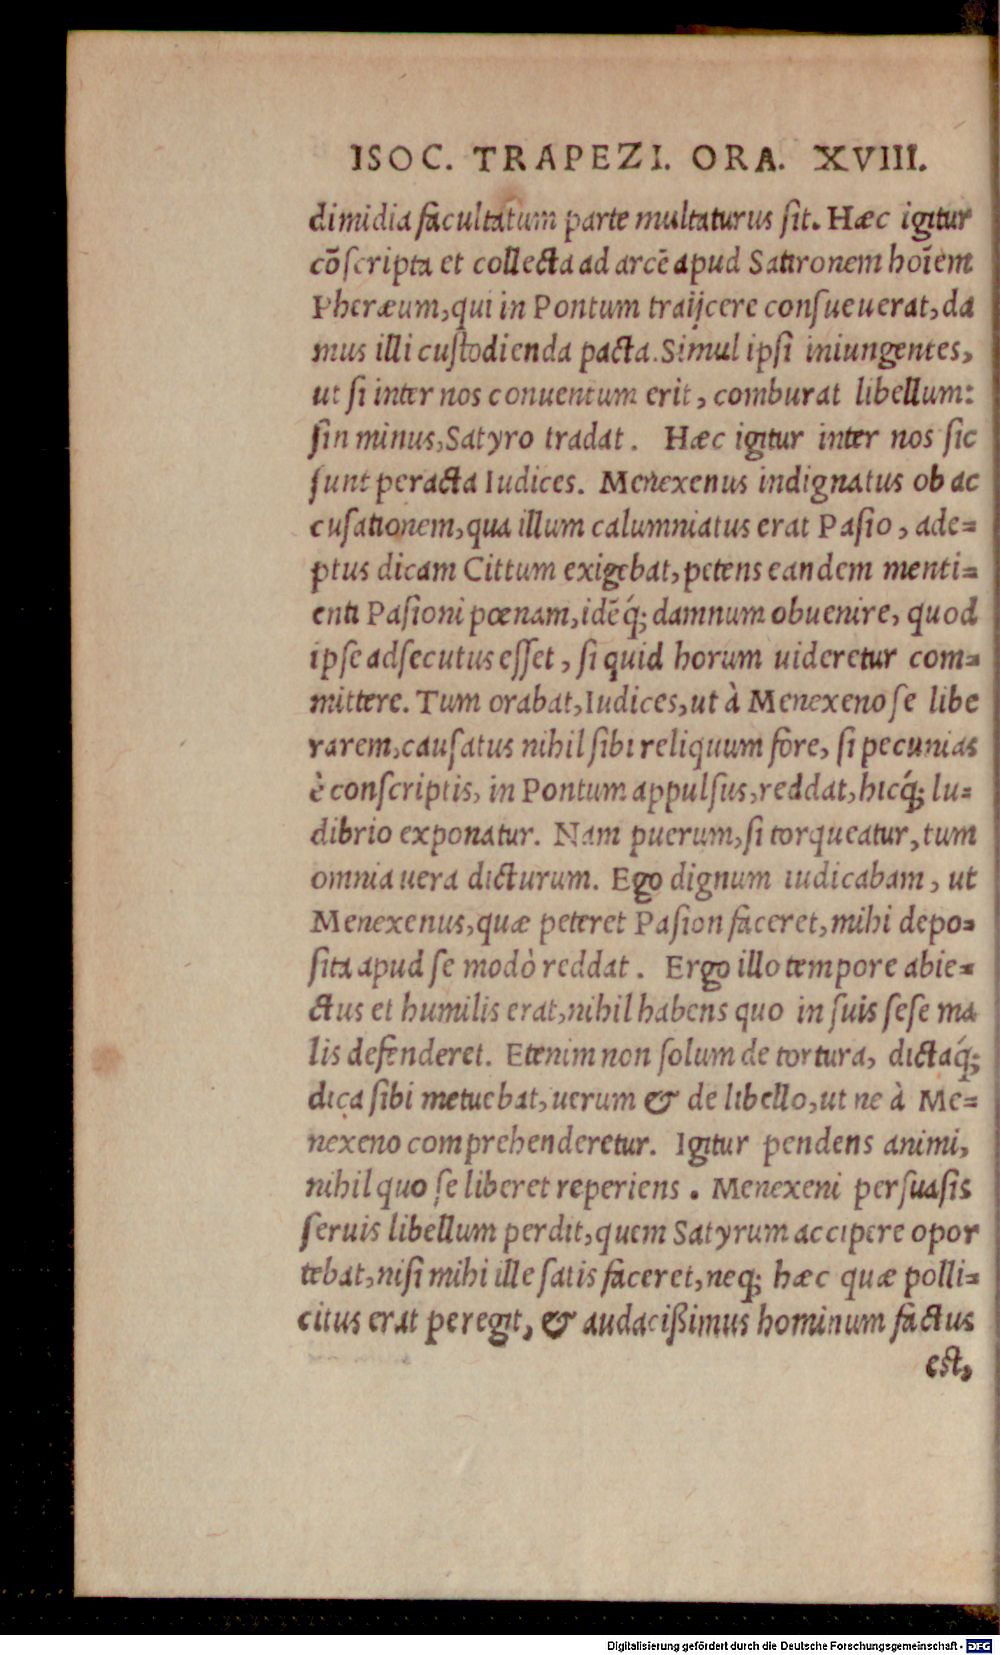 ISOC. TRAPEZI. ORA. XVIII.
dimidia facultatum parte multaturus ſit. Hæc igitur
cõſcripta et collecta ad arcẽ apud Satironem hoĩem
Pheræum, qui in Pontum traijcere conſueuerat, da
mus illi cuſtodienda pacta. Simul ipſi iniungentes,
ut ſi inter nos conuentum erit, comburat libellum:
ſin minus, Satyro tradat. Hæc igitur inter nos ſic
ſunt peracta Iudices. Menexenus indignatus ob ac
cuſationem, qua illum calumniatus erat Paſio, ade=
ptus dicam Cittum exigebat, petens eandem menti=
enti Paſioni pœnam, idẽq́; damnum obuenire, quod
ipſe adſecutus eſſet, ſi quid horum uideretur com=
mittere. Tum orabat, Iudices, ut à Menexeno ſe libe
rarem, cauſatus nihil ſibi reliquum fore, ſi pecunias
è conſcriptis, in Pontum appulſus, reddat, hicq́; lu=
dibrio exponatur. Nam puerum, ſi torqueatur, tum
omnia uera dicturum. Ego dignum iudicabam, ut
Menexenus, quæ peteret Paſion faceret, mihi depo=
ſita apud ſe modò reddat. Ergo illo tempore abie=
ctus et humilis erat, nihil habens quo in ſuis ſeſe ma
lis defenderet. Etenim non ſolum de tortura, dictaq́;
dica ſibi metuebat, uerum & de libello, ut ne à Me=
nexeno comprehenderetur. Igitur pendens animi,
nihil quo ſe liberet reperiens. Menexeni perſuaſis
ſeruis libellum perdit, quem Satyrum accipere opor
tebat, niſi mihi ille ſatis faceret, neq; hæc quæ polli=
citus erat peregit, & audacißimus hominum factus
eſt,
Digitalisierung gefördert durch die Deutsche Forschungsgemeinschaft - DFG